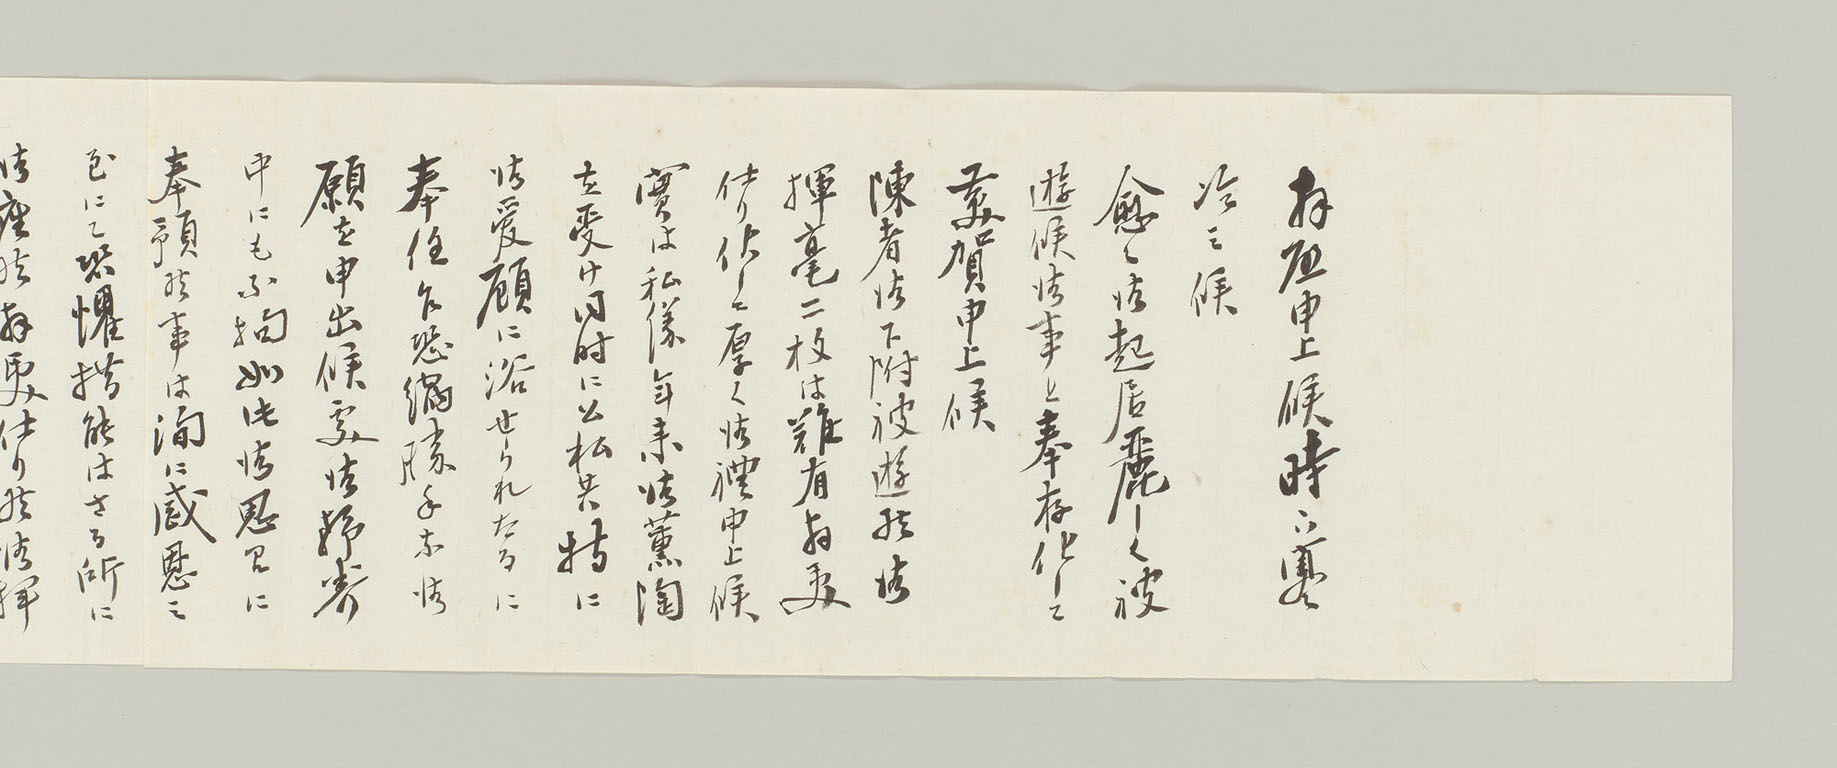 拝啓申上候時下寒
冷之候
愈々御起居麗しく被
遊候御事と奉存化して
慶賀申上候
陳者御下附被遊候御
揮毫二枚は難有拝受
仕り候して厚く御禮申上候
實は私儀年来御薫陶
を受け同時に公私共特に
御愛顧に浴せられたるに
奉任乍恐縮勝手な御
願を申出候處御静養
中にも不拘如此御恩召に
奉預候事は洵に感恩之
至にて恐懼措能はざる所に
御座候拝受仕り候御揮